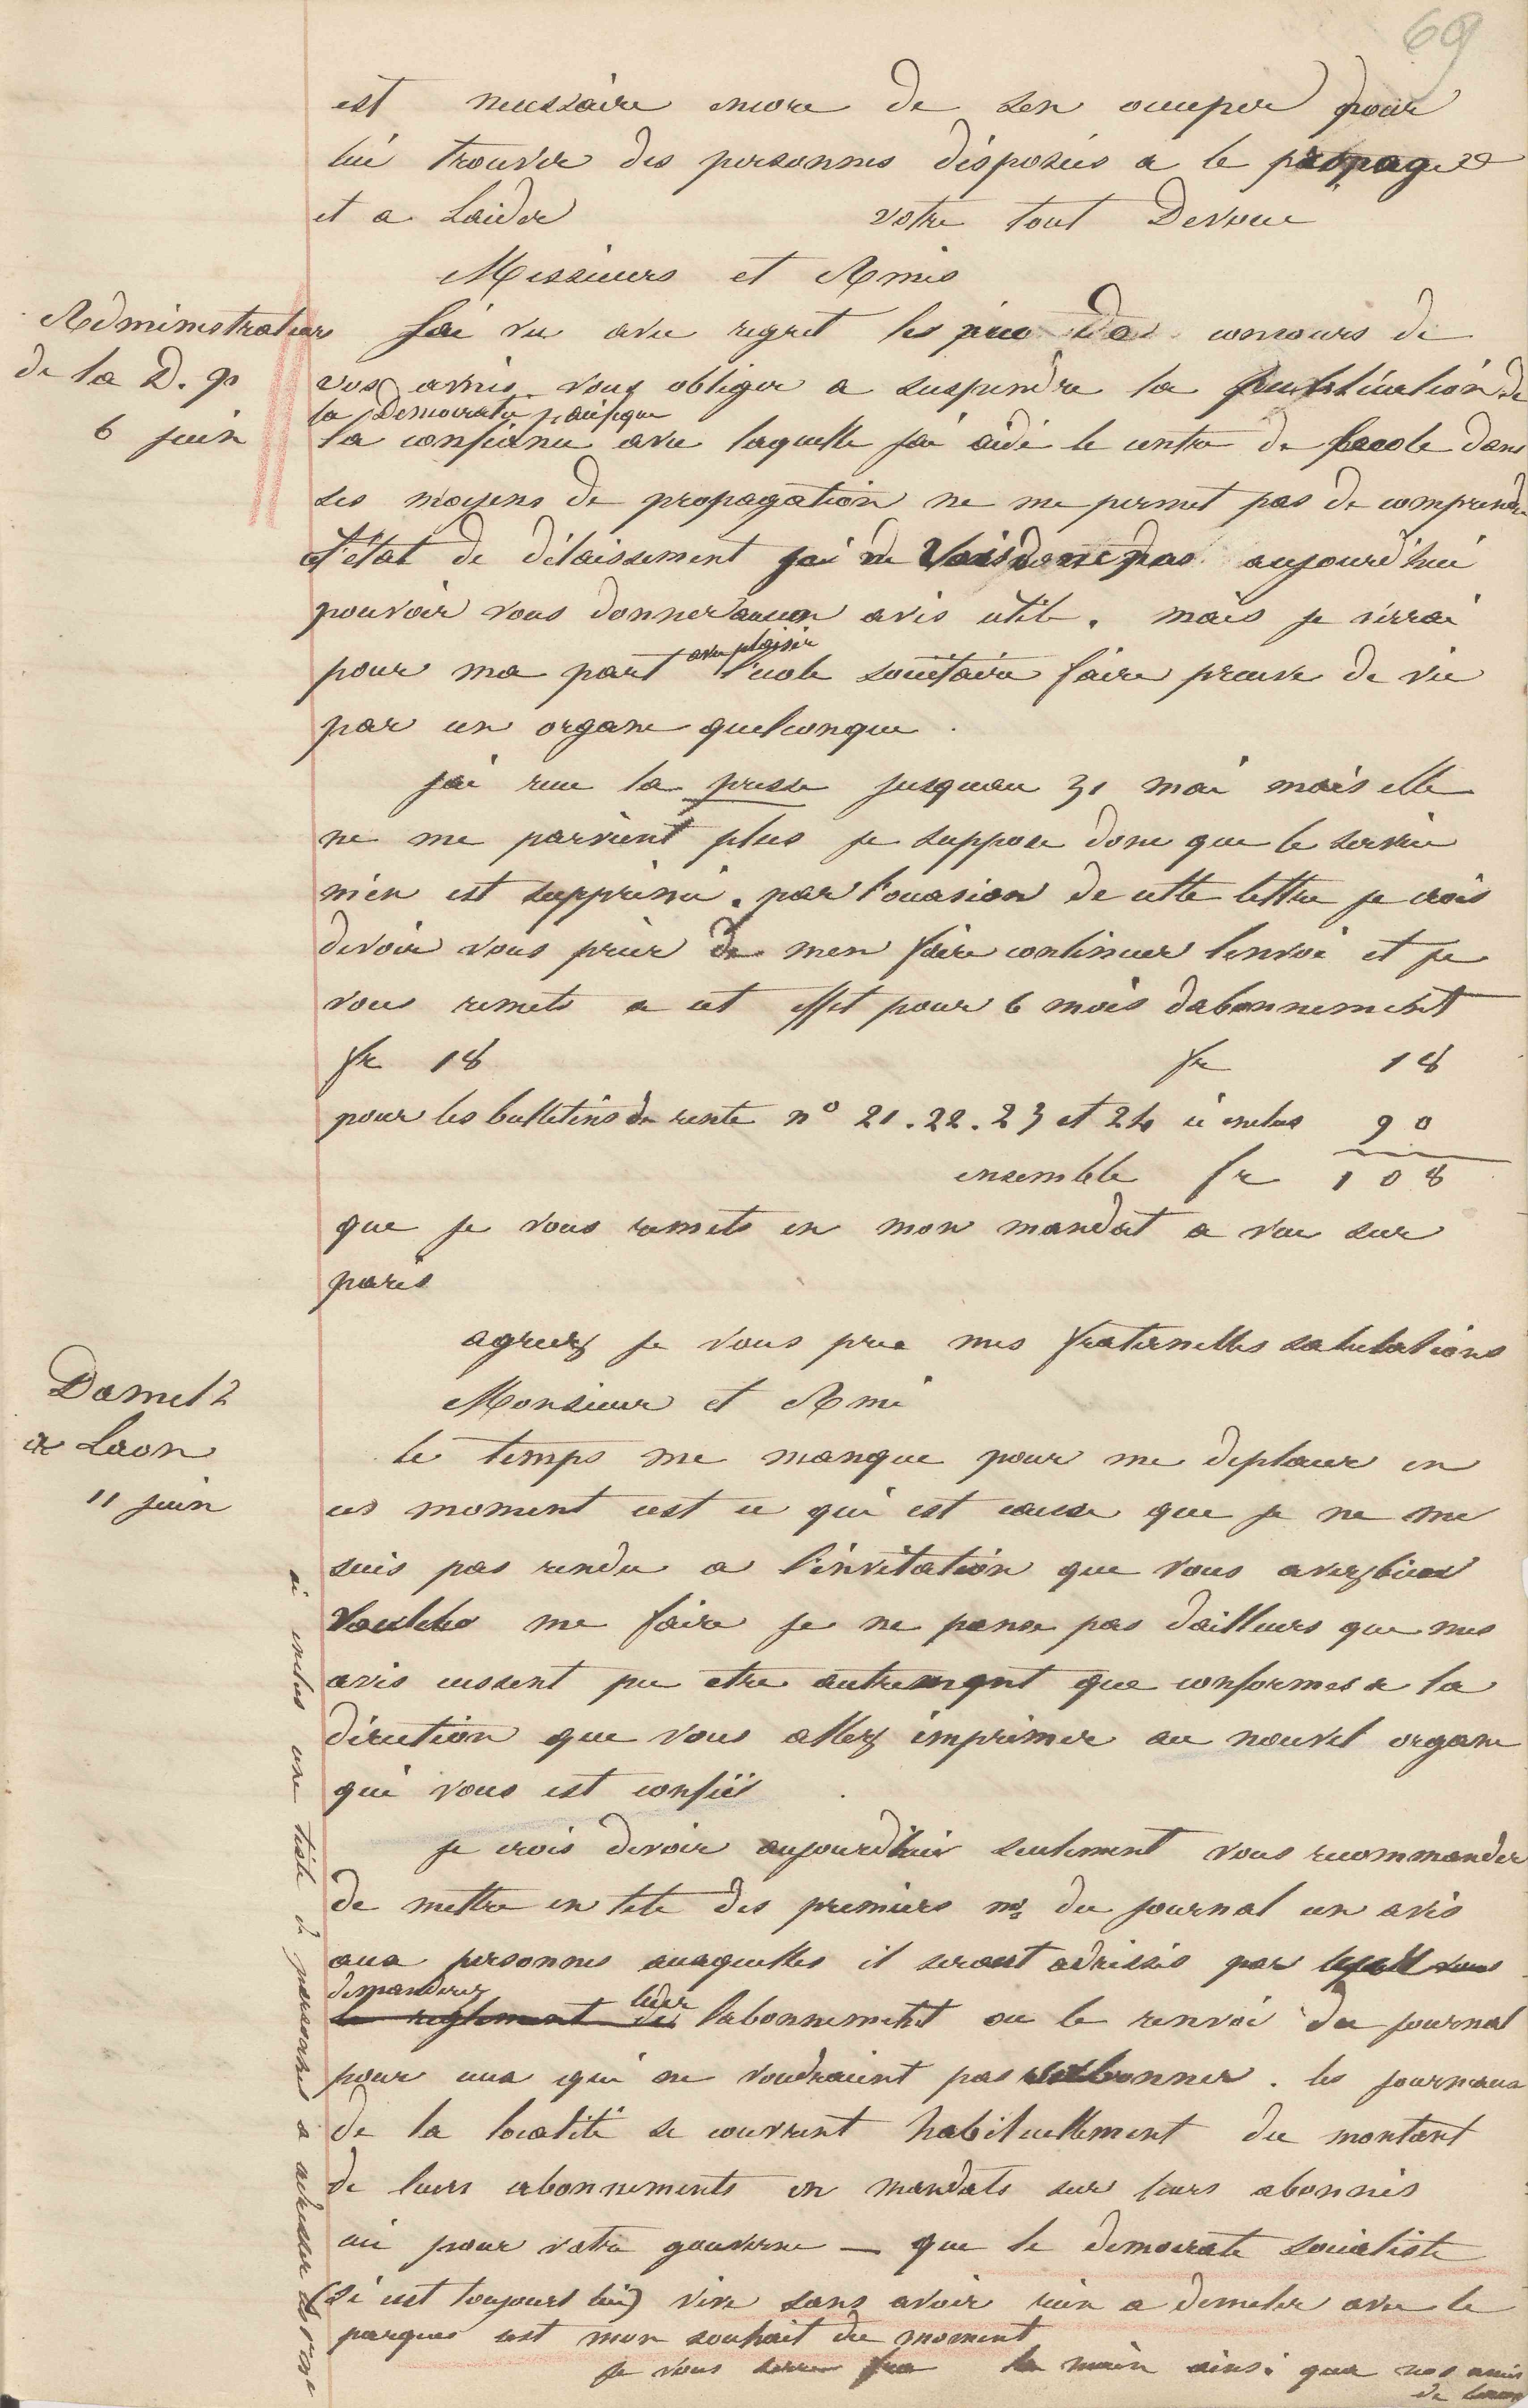 69
est necessaire encore de sen occuper pour
lui trouver des personnes disposées a le propager
et a Laider votre tout Devoué
Messieurs et Amis
Administrateurs
de la D. p
6 juin
Jai vu avec regret le peu de concours de
vos amis vous obliger a suspendre la publication de
la Democratie pacifique
la confiance avec laquelle jai aidé le centre de lecole dans
ses moyens de propagation ne me permet pas de comprendre
l'état de délaissement je ne Vois donc pas aujourd'hui
pouvoir vous donner aucun avis utile. mais je verrai
pour ma part avec plaisir l'ecole sociétaire faire preuve de vie
par un organe quelconque.
jai recu la presse jusquau 31 mai mais elle
ne me parvient plus je suppose donc que le service
m'en est supprimé. par l'occasion de cette lettre je crois
devoir vous prier de men faire continuer lenvoi et je
vous remets a cet effet pour 6 mois dabonnement
fr 18 fr 18
pour les bulletins de rente n° 21. 22. 23 et 24 ci inclus 90
ensemble fr 108
que je vous remets en mon mandat a vue sur
paris
agreez je vous prie mes fraternelles salutations
Dameth
a Laon
11 juin
Monsieur et Ami
le temps me manque pour me deplacer en
ces moment cest ce qui est cause que je ne me
suis pas rendu a l'invitation que vous avez bien
Voulue me faire je ne pense pas dailleurs que mes
avis eussent pu etre autrement que conformes a la
direction que vous allez imprimer au nouvel organe
qui vous est confié
je crois devoir aujourdhui seulement vous recommander
de mettre en tete des premiers nos du journal un avis
aux personnes auxquelles il seront adressés par lequel vous
demanderez
le reglement de l'abonnement ou le renvoi du journal
pour ceux qui ne voudraient pas sabonner. les journaux
de la localité se couvrent habituellement du montant
de leurs abonnements en mandats sur leurs abonnés
ceci pour votre gouverne — que le democrate socialiste
(si cest toujours lui) vive sans avoir rien a demeler avec le
parquet cest mon souhait du moment
je vous serre la main ainsi qua nos amis
de
ci inclus une liste de personnes a adresser